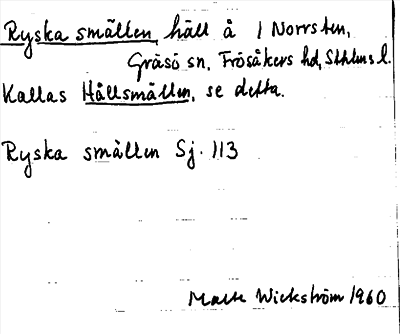 Ryska smällen, häll å / Norrsten,
Gräsö sn, Frösåkers hd, Sthlms l.
Kallas Hällsmällen, se detta.
Ryska smällen Sj. 113
Malte Wickström 1960